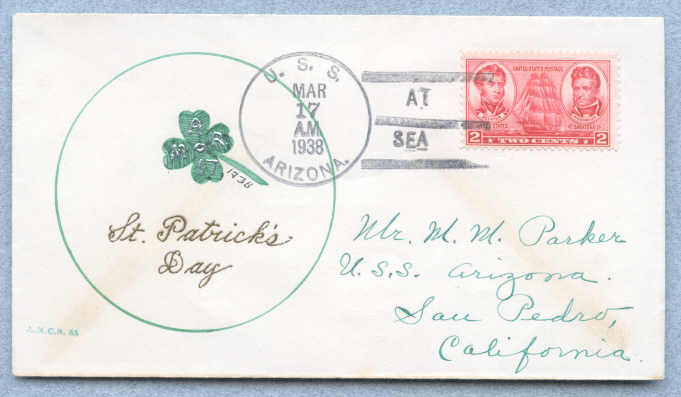 U. S. S.
MAR
17
A.M.
1938
ARIZONA.
AT
SEA
UNITED STATES POSTAGE
2 TWO CENTS 2
MAR
17
1938
St. Patrick's
Day
Mr. M. M. Parker
U.S.S. Arizona.
San Pedro,
California.